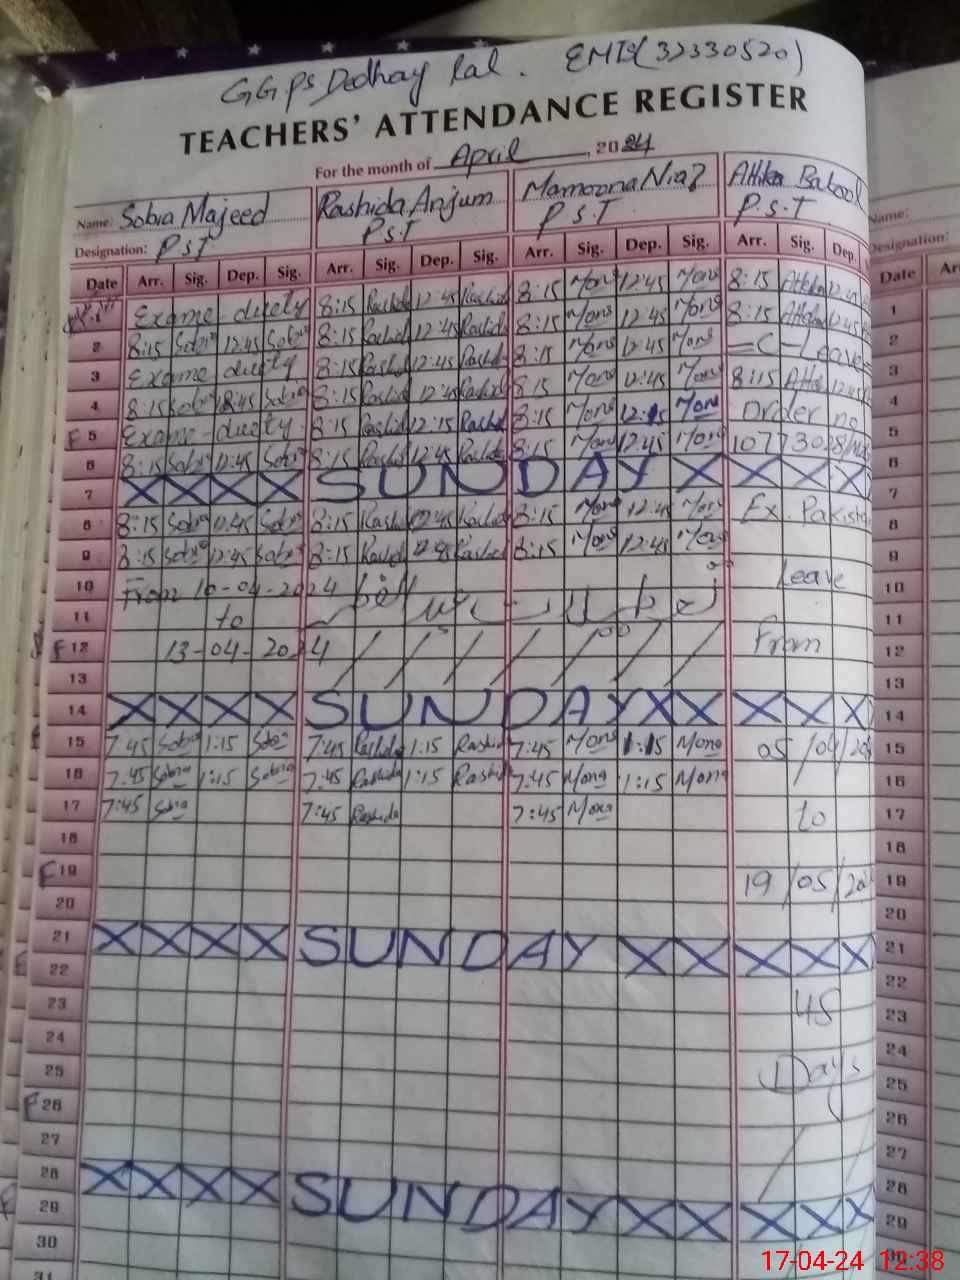 GGPS Dedhay Lal. EMIS(32330520)
TEACHERS' ATTENDANCE REGISTER
For the month of April, 2024
Name: Sobia Majeed Rashida Anjum Mamoona Niaz Attika Batool Name:
Designation: P.S.T P.S.T P.S.T P.S.T Designation:
Date Arr. Sig. Dep. Sig. Arr. Sig. Dep. Sig. Arr. Sig. Dep. Sig. Arr. Sig. Dep. Date
Exame duety 8:15 Rashid 12:45 Rashid 8:15 Mona 12:45 Mona 8:15 Attika 12:45 1
2 8:15 Sobia 12:45 Sobia 8:15 Rashid 12:45 Rashid 8:15 Mona 12:45 Mona 8:15 Attika 12:45 2
3 Exame duety 8:15 Rashid 12:45 Rashid 8:15 Mona 12:45 Mona C-Leave 3
4 8:15 Sobia 12:45 Sobia 8:15 Rashid 12:45 Rashid 8:15 Mona 12:45 Mona 8:15 Attika 12:45 4
F 5 Exame duety 8:15 Rashid 12:15 Rashid 8:15 Mona 12:15 Mona Order no 5
6 8:15 Sobia 12:45 Sobia 8:15 Rashid 12:45 Rashid 8:15 Mona 12:45 Mona 6
7 X X X X SUNDAY X X X X X 7
8 8:15 Sobia 12:45 Sobia 8:15 Rashid 12:45 Rashid 8:15 Mona 12:45 Mona Ex Pakistan 8
9 8:15 Sobia 12:45 Sobia 8:15 Rashid 12:45 Rashid 8:15 Mona 12:45 Mona 9
10 From 10-04-2024 Leave 10
11 to 11
F 12 13-04-2024 From 12
13 13
14 X X X X SUNDAY X X X X X 14
15 7:45 Sobia 1:15 Sobia 7:45 Rashida 1:15 Rashid 7:45 Mona 1:15 Mona 05/04/20 15
16 7:45 Sobia 1:15 Sobia 7:45 Rashida 1:15 Rashid 7:45 Mona 1:15 Mona 16
17 7:45 Sobia 7:45 Rashida 7:45 Mona to 17
18 18
F 19 19/05/20 19
20 20
21 X X X X SUNDAY X X X X X 21
22 22
23 45 23
24 24
25 Days 25
F 26 26
27 27
28 X X X X SUNDAY X X X X X 28
29 29
30 30
31
17-04-24 12:38